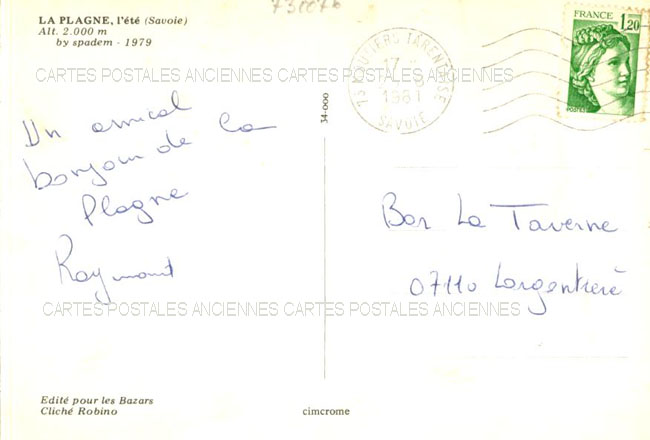 LA PLAGNE, l'été (Savoie)
Alt. 2.000 m
by spadem - 1979
FRANCE
1,20
MOUTIERS TARENTAISE
1981
SAVOIE
CARTES POSTALES ANCIENNES CARTES POSTALES ANCIENNES
34-000
Un amical
bonjour de La
Plagne
Raymond
Bar La Taverne
07110 Largentière
CARTES POSTALES ANCIENNES CARTES POSTALES ANCIENNES
Edité pour les Bazars
Cliché Robino
cimcrome